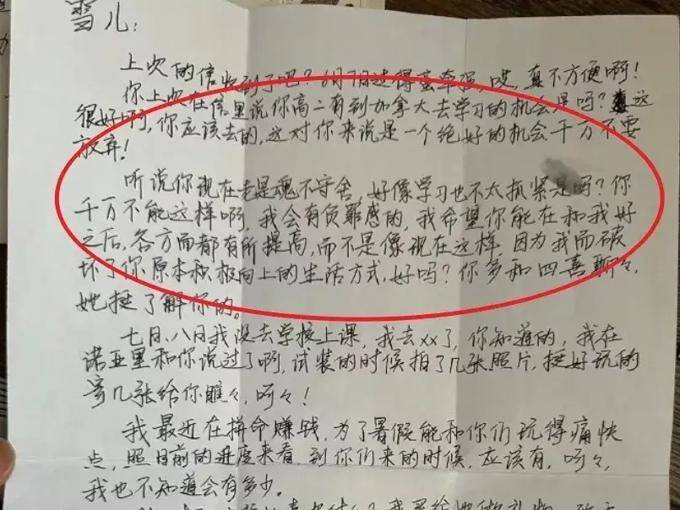 雪儿:
上次的信收到了吧?6月1日过得蛮牵强,哎,真不方便啊!
你上次在信里说你高二有到加拿大去学习的机会是吗?这
很好啊,你应该去的,这对你来说是一个绝好的机会千万不要
放弃!
听说你现在老是魂不守舍,好像学习也不太抓紧是吗?你
千万不能这样啊,我会有负罪感的,我希望你能在和我好
之后,各方面都有所提高,而不是像现在这样 因为我而破
坏了你原本积极向上的生活方式,好吗?你多和四喜聊々,
她挺了解你的。
七日、八日我没去学校上课,我去xx了,你知道的,我在
诺亚里和你说过了啊,试装的时候拍了几张照片,挺好玩的
寄几张给你瞧々,呵々!
我最近在拼命赚钱,为了暑假能和你们玩得痛快
点,照目前的进度来看,到你们来的时候,应该有,呵々,
我也不知道会有多少。